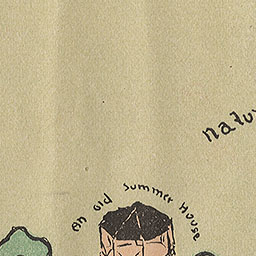 An old Summer House